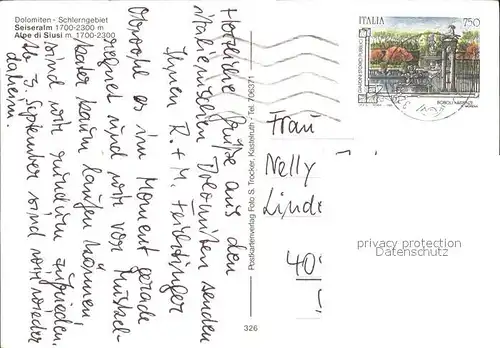 Dolomiten - Schlerngebiet
Seiseralm 1700-2300 m
Alpe di Siusi m. 1700-2300
Herzliche Grüße aus den
italienischen Dolomiten senden
Ihnen R. + M.
Obwohl es im Moment gerade
regnet und wir vor Muskel-
kater kaum laufen können
sind wir rundum zufrieden.
Ab 3. September sind wir wieder
daheim.
Postkartenverlag Foto S. Trocker, Kastelruth - Tel. 706371
326
ITALIA
750
GIARDINI STORICI PUBBLICI
BOBOLI - FIRENZE
Frau
Nelly
Linde
40
privacy protection
Datenschutz